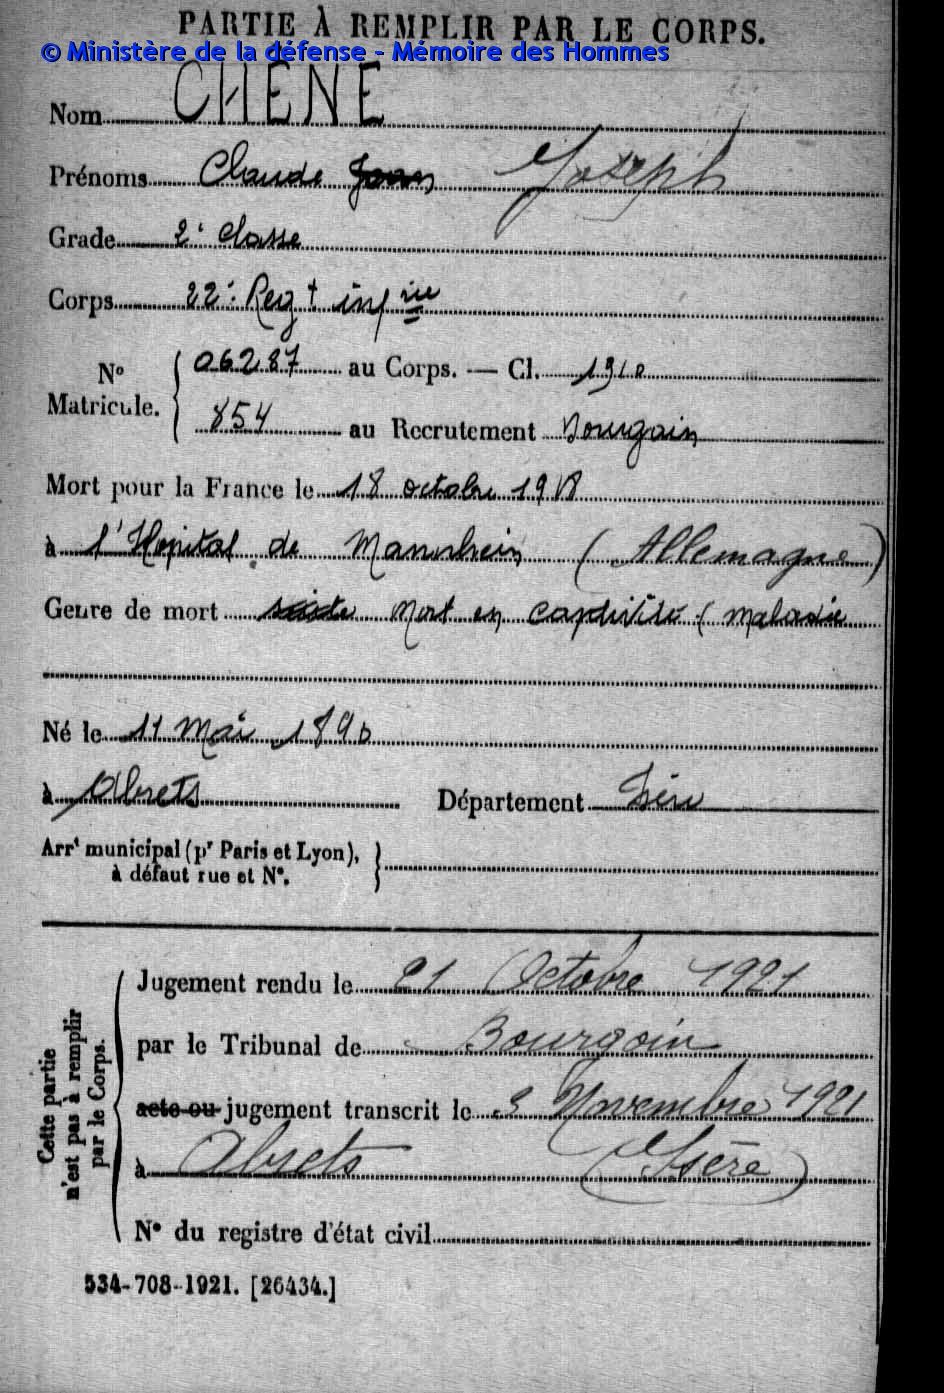 PARTIE À REMPLIR PAR LE CORPS.
© Ministère de la défense - Mémoire des Hommes
Nom CHENE
Prénoms Claude Joseph
Grade 2e classe
Corps 22e Regt infrie
No Matricule. 06287 au Corps. — Cl. 1910
854 au Recrutement Bourgoin
Mort pour la France le 18 octobre 1918
à l'Hopital de Mannheim (Allemagne)
Genre de mort suite Mort en captivité (maladie
Né le 11 Mai 1890
à Abrets Département Isère
Arrt municipal (pr Paris et Lyon),
à défaut rue et N°.
Cette partie n'est pas à remplir par le Corps.
Jugement rendu le 21 Octobre 1921
par le Tribunal de Bourgoin
acte ou jugement transcrit le 9 Novembre 1921
à Abrets (Isère)
N° du registre d'état civil
534-708-1921. [26434.]